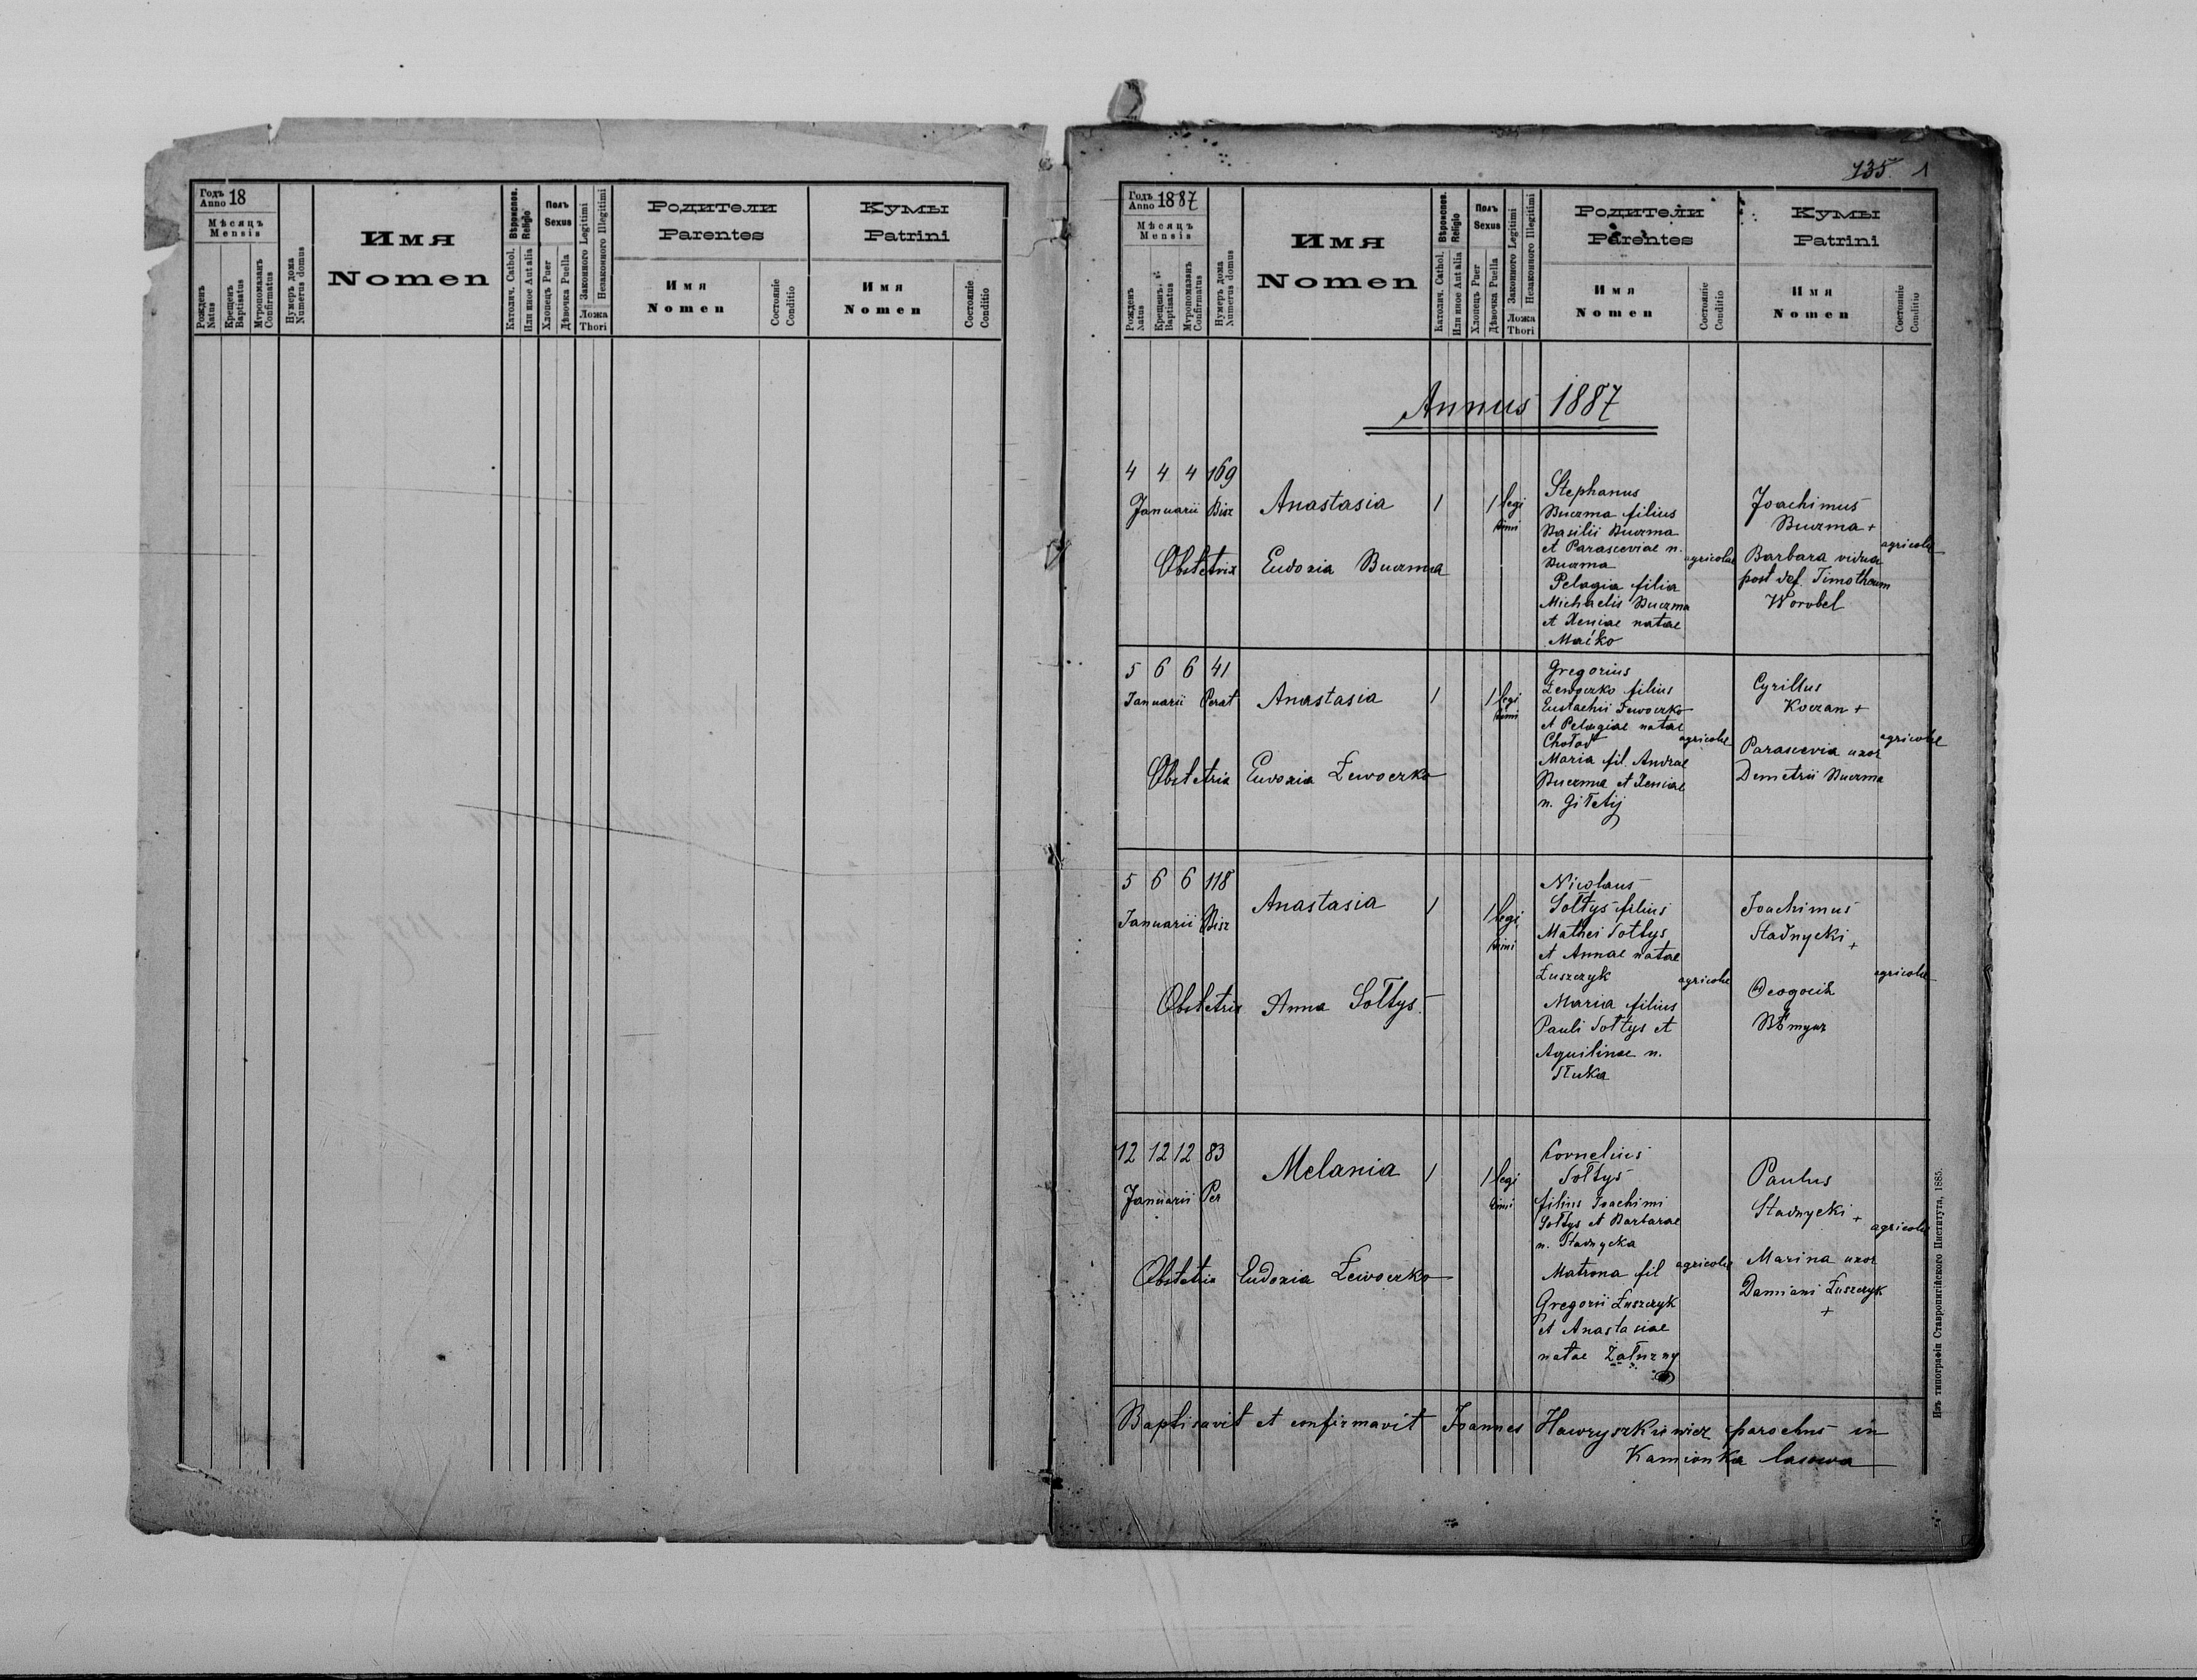 Годъ 18
Anno
Мѣсяцъ
Mensis
Рожденъ
Natus
Крещенъ
Baptisatus
Муропомазанъ
Confirmatus
Нумеръ дома
Numerus domus
Имя
Nomen
Вѣроиспов.
Religio
Католич. Cathol.
Или иное Aut alia
Полъ
Sexus
Хлопецъ Puer
Дѣвочка Puella
Законного Legitimi
Незаконного Illegitimi
Ложа
Thori
Родители
Parentes
Имя
Nomen
Состояніе
Conditio
Кумы
Patrini
Имя
Nomen
Состояніе
Conditio
135. 1
Годъ 1887
Anno
Мѣсяцъ
Mensis
Рожденъ
Natus
Крещенъ
Baptisatus
Муропомазанъ
Confirmatus
Нумеръ дома
Numerus domus
Имя
Nomen
Вѣроиспов.
Religio
Католич. Cathol.
Или иное Aut alia
Полъ
Sexus
Хлопецъ Puer
Дѣвочка Puella
Законного Legitimi
Незаконного Illegitimi
Ложа
Thori
Родители
Parentes
Имя
Nomen
Состояніе
Conditio
Кумы
Patrini
Имя
Nomen
Состояніе
Conditio
Annus 1887
4 4 4 169
Januarii Bisz
Anastasia 1 1 legi
timi
Obstetrix Eudoxia Buczma
Stephanus
Buczma filius
Basilii Buczma
et Parasceviae n.
Buczma
Pelagia filia
Michaelis Buczma
et Xeniae natae
Maćko
agricolae
Joachimus
Buczma +
Barbara vidua
post def. Timotheum
Worobel
agricolae
5 6 6 41
Januarii Perat
Anastasia 1 1 legi
timi
Obstetrix Eudoxia Lewoczko
Gregorius
Lewoczko filius
Eustachii Lewoczko
et Pelagiae natae
Chołod
Maria fil. Andreae
Buczma et Xeniae
n. Giłetij
agricolae
Cyrillus
Koczan +
Parascevia uxor
Demetrii Buczma
agricolae
5 6 6 118
Januarii Bisz
Anastasia 1 1 legi
timi
Obstetrix Anna Sołtys.
Nicolaus
Sołtys filius
Mathei Sołtys
et Annae natae
Łuszczyk
Maria filius
Pauli Sołtys et
Aquilinae n.
Słuka
agricolae
Joachimus
Stadnycki +
agricolae
12 12 12 83
Januarii Per
Melania 1 1 legi
timi
Obstetrix Eudoxia Lewoczko
Cornelius
Sołtys
filius Joachimi
Sołtys et Barbarae
n. Stadnycka
Matrona fil
Gregorii Łuszczyk
et Anastasiae
natae Załuzny
agricolae
Paulus
Stadnycki +
Marina uxor
Damiani Łuszczyk
+
agricolae
Baptisavit et confirmavit Joannes Hawryszkiewicz parochus in
Kamionka lasowa
Изъ типографіи Ставропигійского Института, 1885.